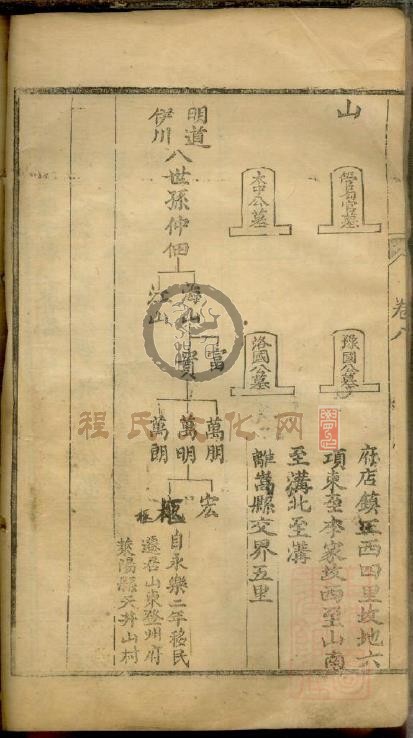 卷八
山
豫國公墓
太中公墓
洛國公墓
府店鎮正西四里坟地六
項東至李家坟西至山南
至溝北至溝
離嵩縣交界五里
明道
伊川
八世孫仲佃
海山
江山
富
寶
萬朋
萬明
萬朗
宏
樞
自永樂二年移民
遷居山東登州府
萊陽縣天井山村
程氏文化网